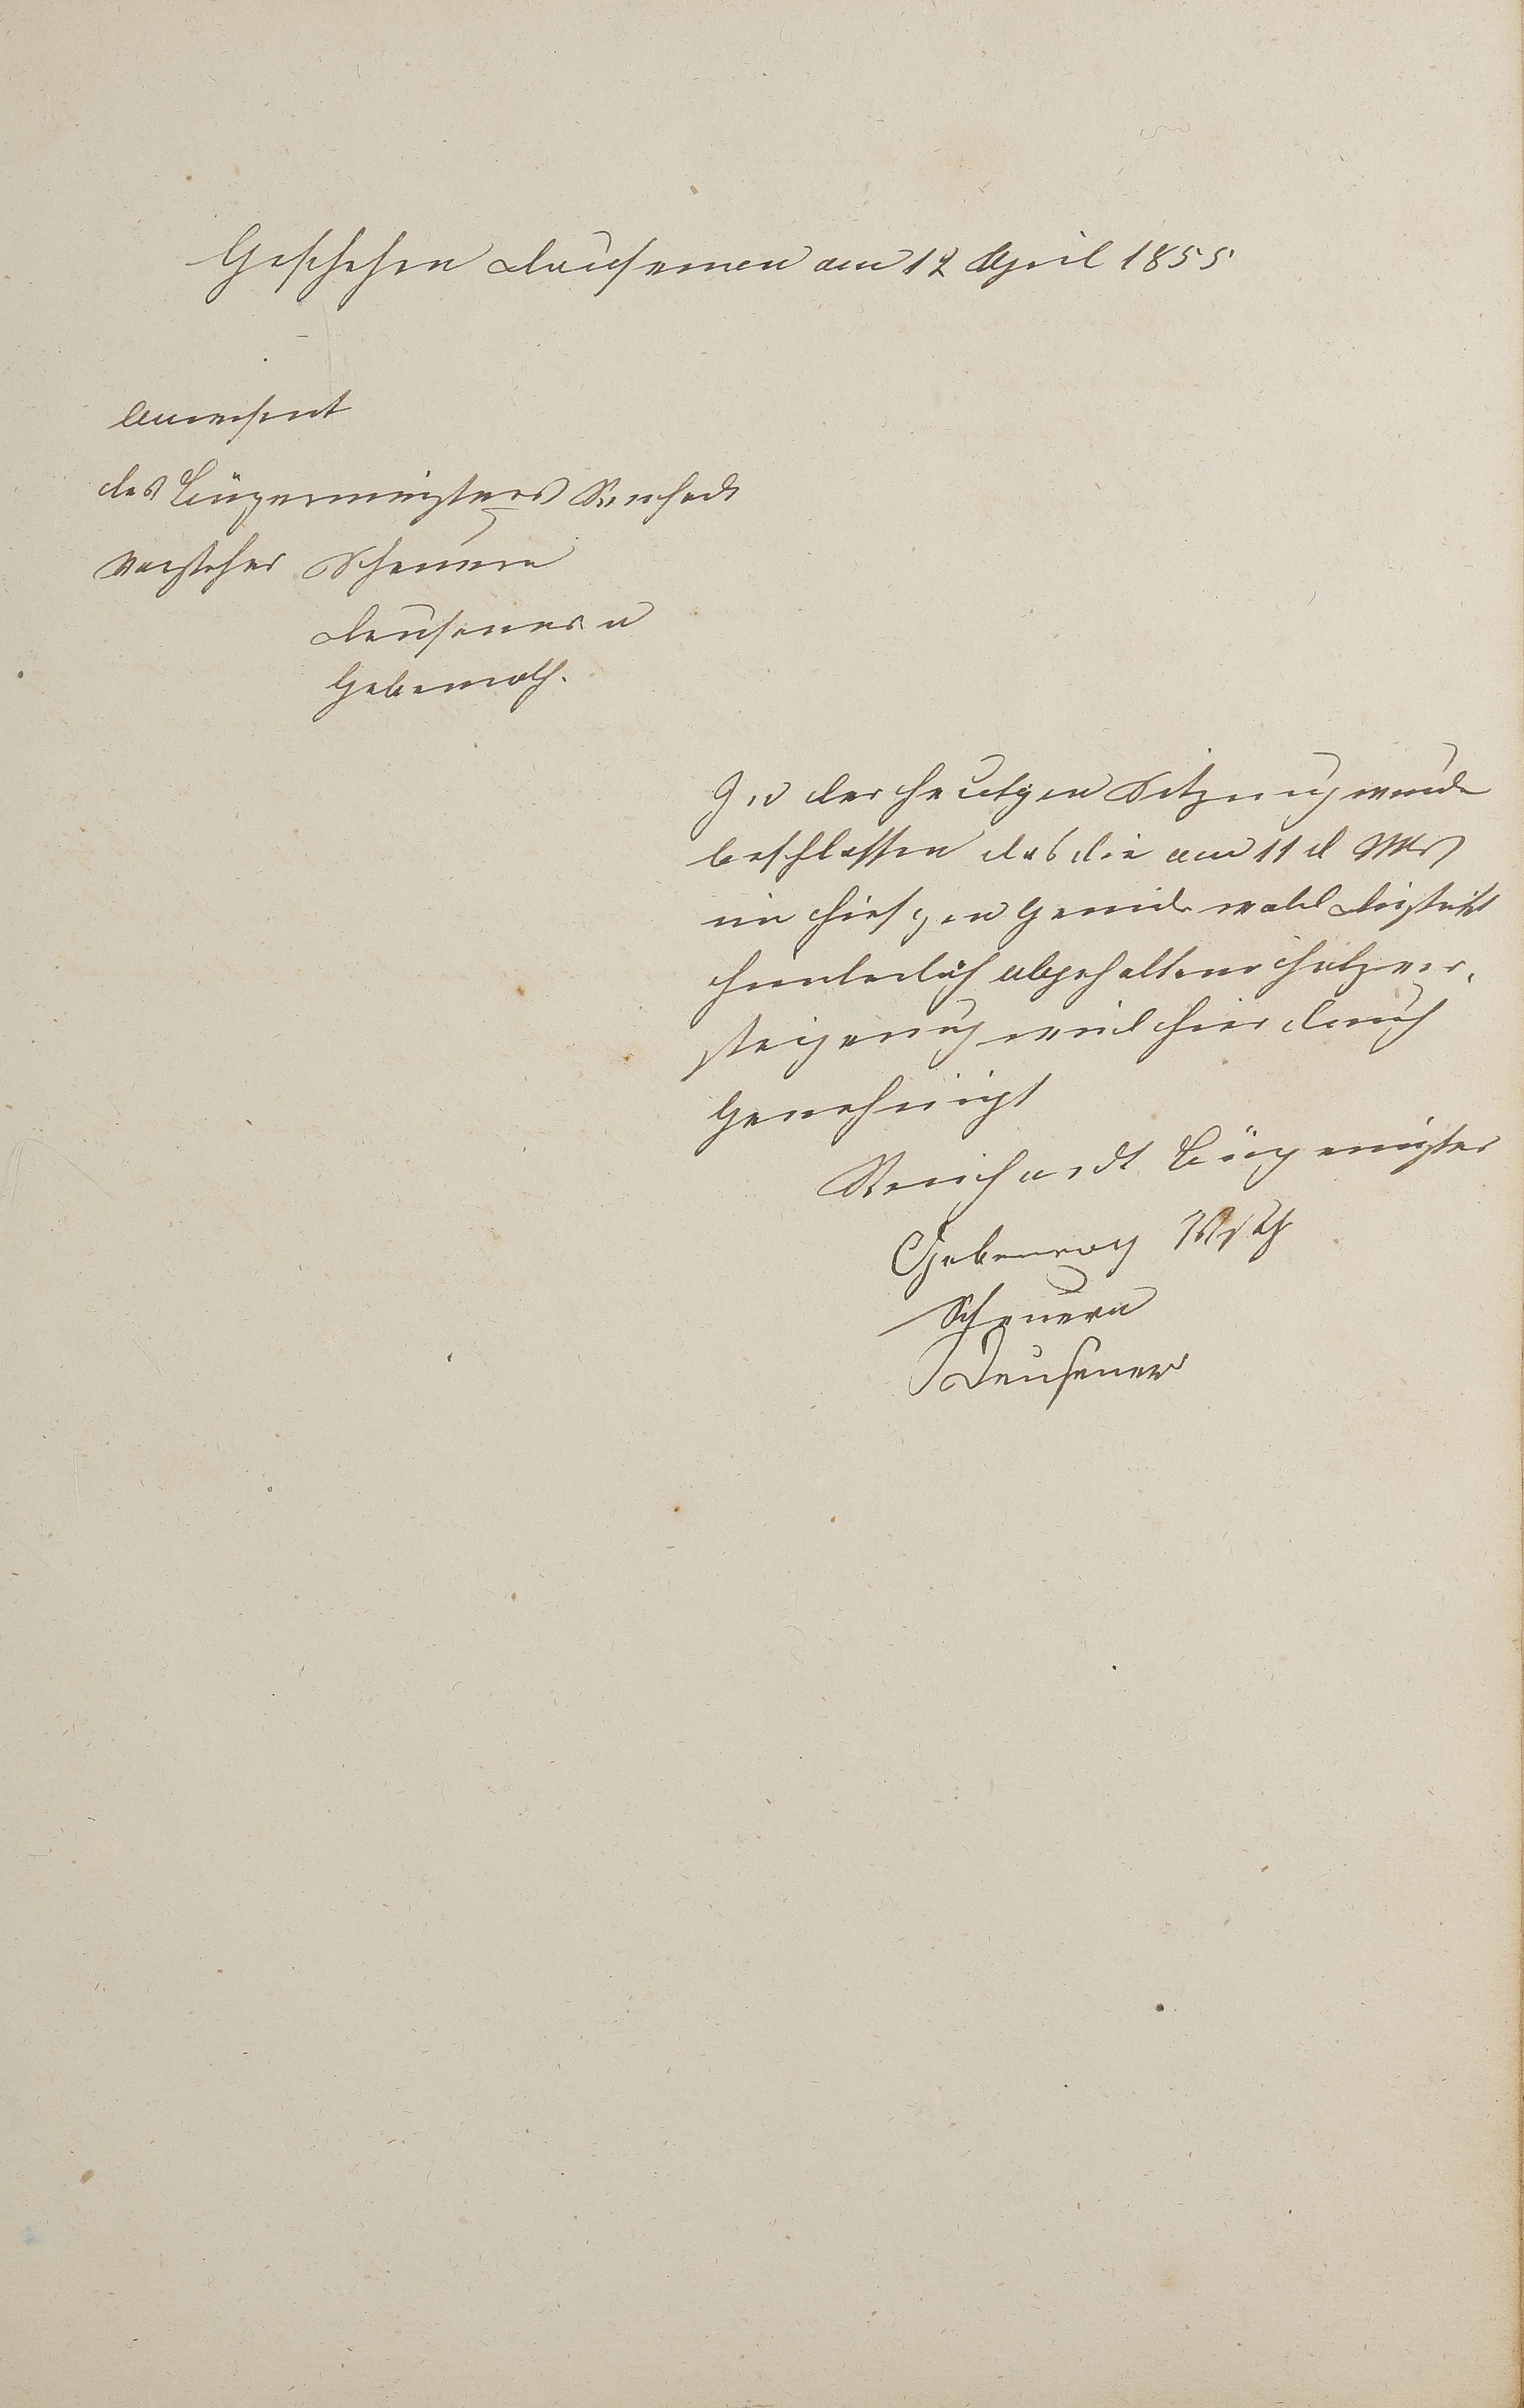 Geschehen Dausenau am 12 April 1855
Anwesent
des Bürgermeisters Reinhardt
Vorsteher Scheuern
Deusener u
Gebenroth.
In der heutgen Sitzung wurde
beschlossen das die am 11 d Mts
im hiesgen Gemeindewald District
abgehaltene Holzver-
steigerung wird hierdurch
Genehmigt
Reinhardt Bürgemister
Gebenroth
Scheuern
Deusener